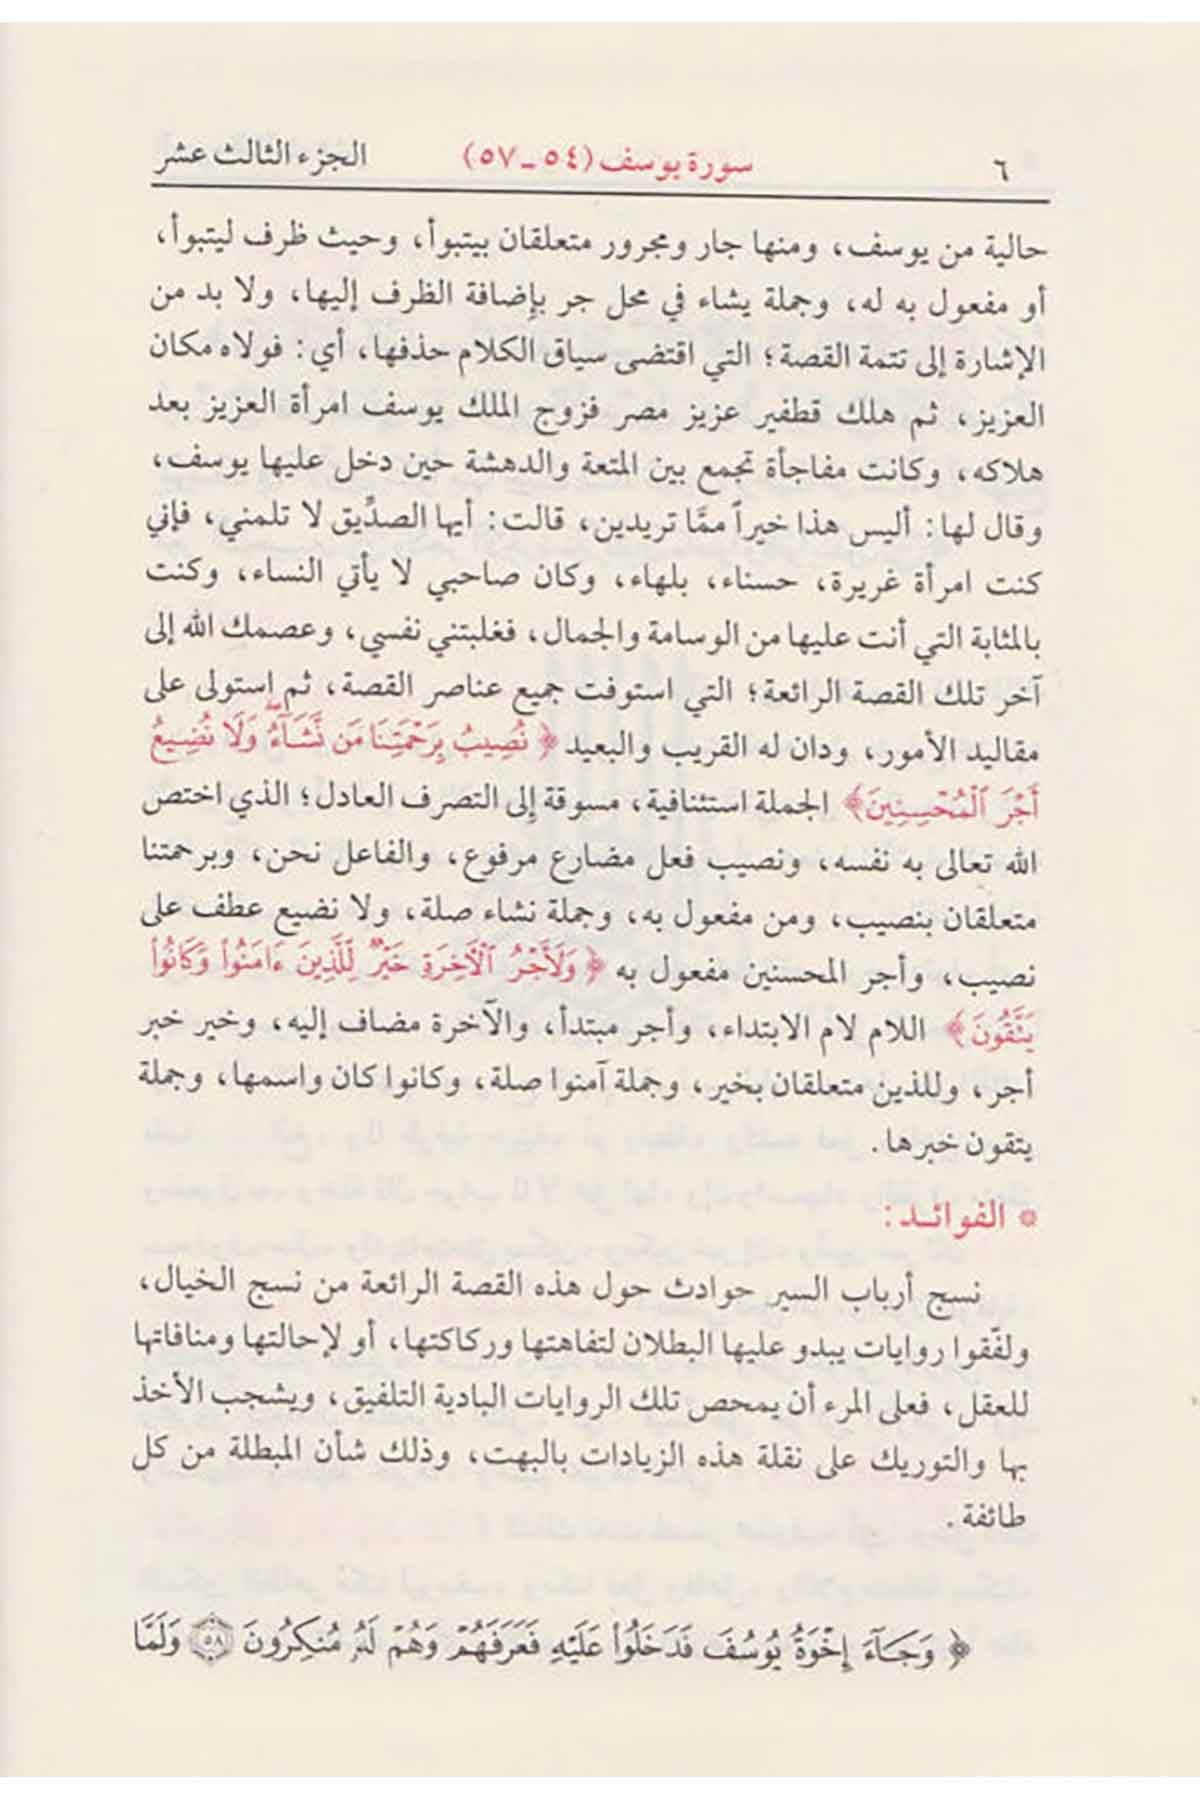 ٦ سورة يوسف (٥٤ - ٥٧) الجزء الثالث عشر
حالية من يوسف، ومنها جار ومجرور متعلقان بيتبوأ، وحيث ظرف ليتبوأ،
أو مفعول به له، وجملة يشاء في محل جر بإضافة الظرف إليها، ولا بد من
الإشارة إلى تتمة القصة؛ التي اقتضى سياق الكلام حذفها، أي: فولاه مكان
العزيز، ثم هلك قطفير عزيز مصر فزوج الملك يوسف امرأة العزيز بعد
هلاكه، وكانت مفاجأة تجمع بين المتعة والدهشة حين دخل عليها يوسف،
وقال لها: أليس هذا خيراً ممَّا تريدين، قالت: أيها الصدِّيق لا تلمني، فإني
كنت امرأة غريرة، حسناء، بلهاء، وكان صاحبي لا يأتي النساء، وكنت
بالمثابة التي أنت عليها من الوسامة والجمال، فغلبتني نفسي، وعصمك الله إلى
آخر تلك القصة الرائعة؛ التي استوفت جميع عناصر القصة، ثم استولى على
مقاليد الأمور، ودان له القريب والبعيد ﴿ نُصِيبُ بِرَحْمَتِنَا مَن نَّشَآءُ وَلَا نُضِيعُ
أَجْرَ ٱلْمُحْسِنِينَ ﴾ الجملة استئنافية، مسوقة إلى التصرف العادل؛ الذي اختص
الله تعالى به نفسه، ونصيب فعل مضارع مرفوع، والفاعل نحن، وبرحمتنا
متعلقان بنصيب، ومن مفعول به، وجملة نشاء صلة، ولا نضيع عطف على
نصيب، وأجر المحسنين مفعول به ﴿ وَلَأَجْرُ ٱلْآخِرَةِ خَيْرٌ لِّلَّذِينَ ءَامَنُوا۟ وَكَانُوا۟
يَتَّقُونَ ﴾ اللام لام الابتداء، وأجر مبتدأ، والآخرة مضاف إليه، وخير خبر
أجر، وللذين متعلقان بخير، وجملة آمنوا صلة، وكانوا كان واسمها، وجملة
يتقون خبرها.
* الفوائد:
نسج أرباب السير حوادث حول هذه القصة الرائعة من نسج الخيال،
ولفّقوا روايات يبدو عليها البطلان لتفاهتها وركاكتها، أو لإحالتها ومنافاتها
للعقل، فعلى المرء أن يمحص تلك الروايات البادية التلفيق، ويشجب الأخذ
بها والتوريك على نقلة هذه الزيادات بالبهت، وذلك شأن المبطلة من كل
طائفة.
﴿ وَجَآءَ إِخْوَةُ يُوسُفَ فَدَخَلُوا۟ عَلَيْهِ فَعَرَفَهُمْ وَهُمْ لَهُۥ مُنكِرُونَ ٥٨ وَلَمَّا